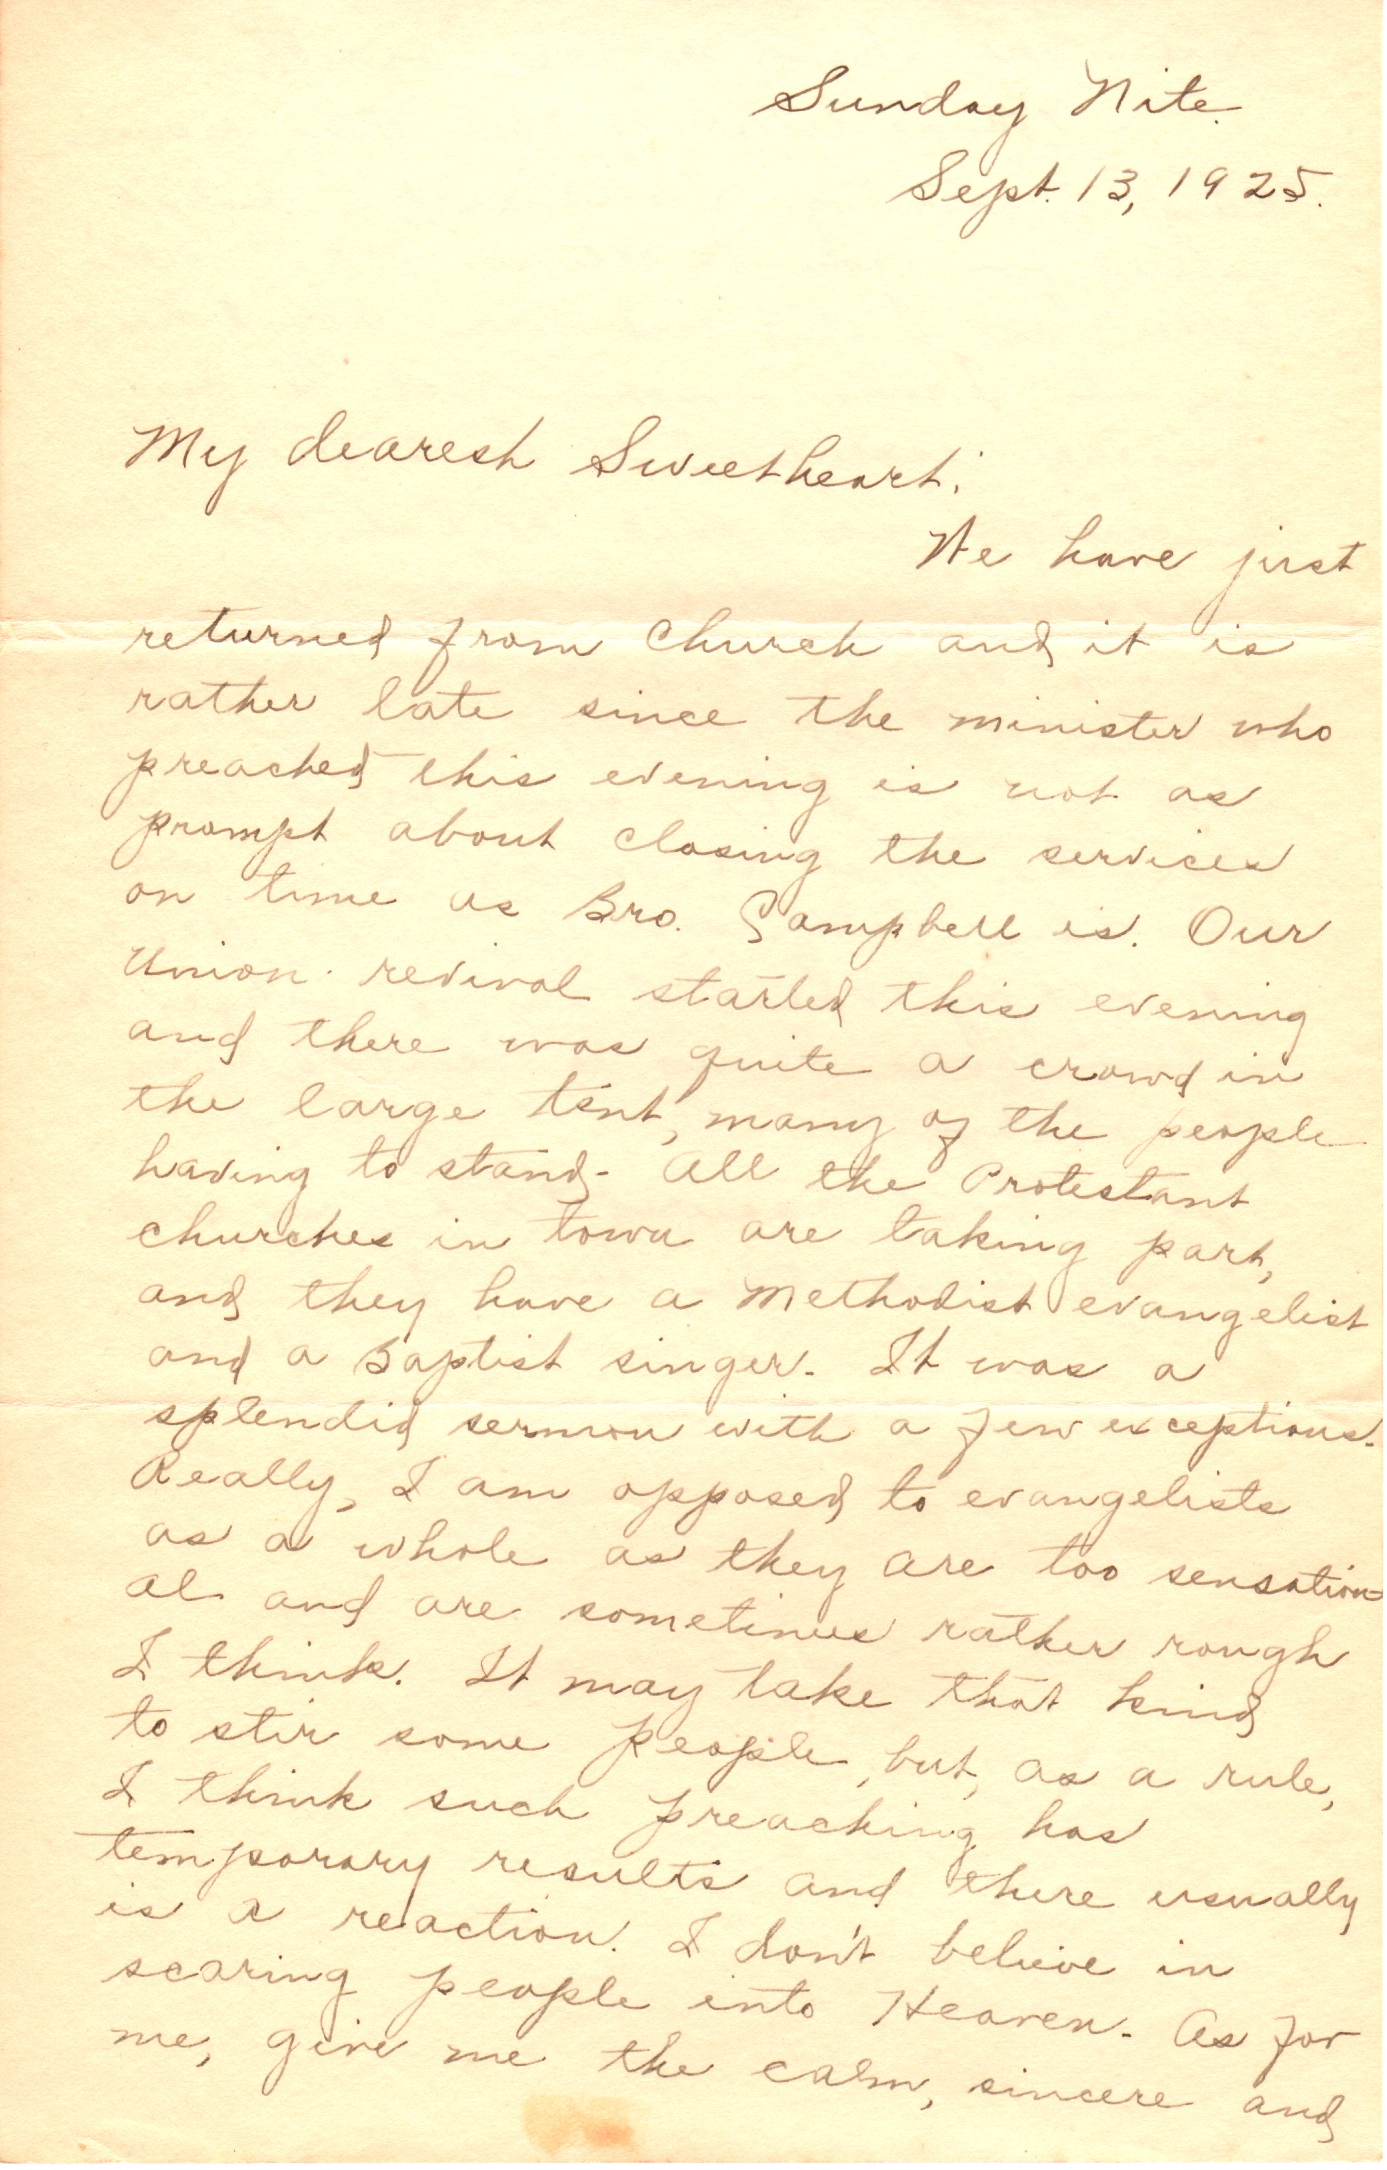 Sunday Nite.
Sept. 13, 1925.
My dearest Sweetheart:
We have just
returned from church and it is
rather late since the minister who
preached this evening is not as
prompt about closing the services
on time as Bro. Campbell is. Our
Union revival started this evening
and there was quite a crowd in
the large tent, many of the people
having to stand. All the Protestant
churches in town are taking part,
and they have a Methodist evangelist
and a Baptist singer. It was a
splendid sermon with a few exceptions.
Really, I am opposed to evangelists
as a whole as they are too sensation-
al and are sometimes rather rough
I think. It may take that kind
to stir some people, but, as a rule,
I think such preaching has
temporary results and there usually
is a reaction. I don't believe in
scaring people into Heaven. As for
me, give me the calm, sincere and